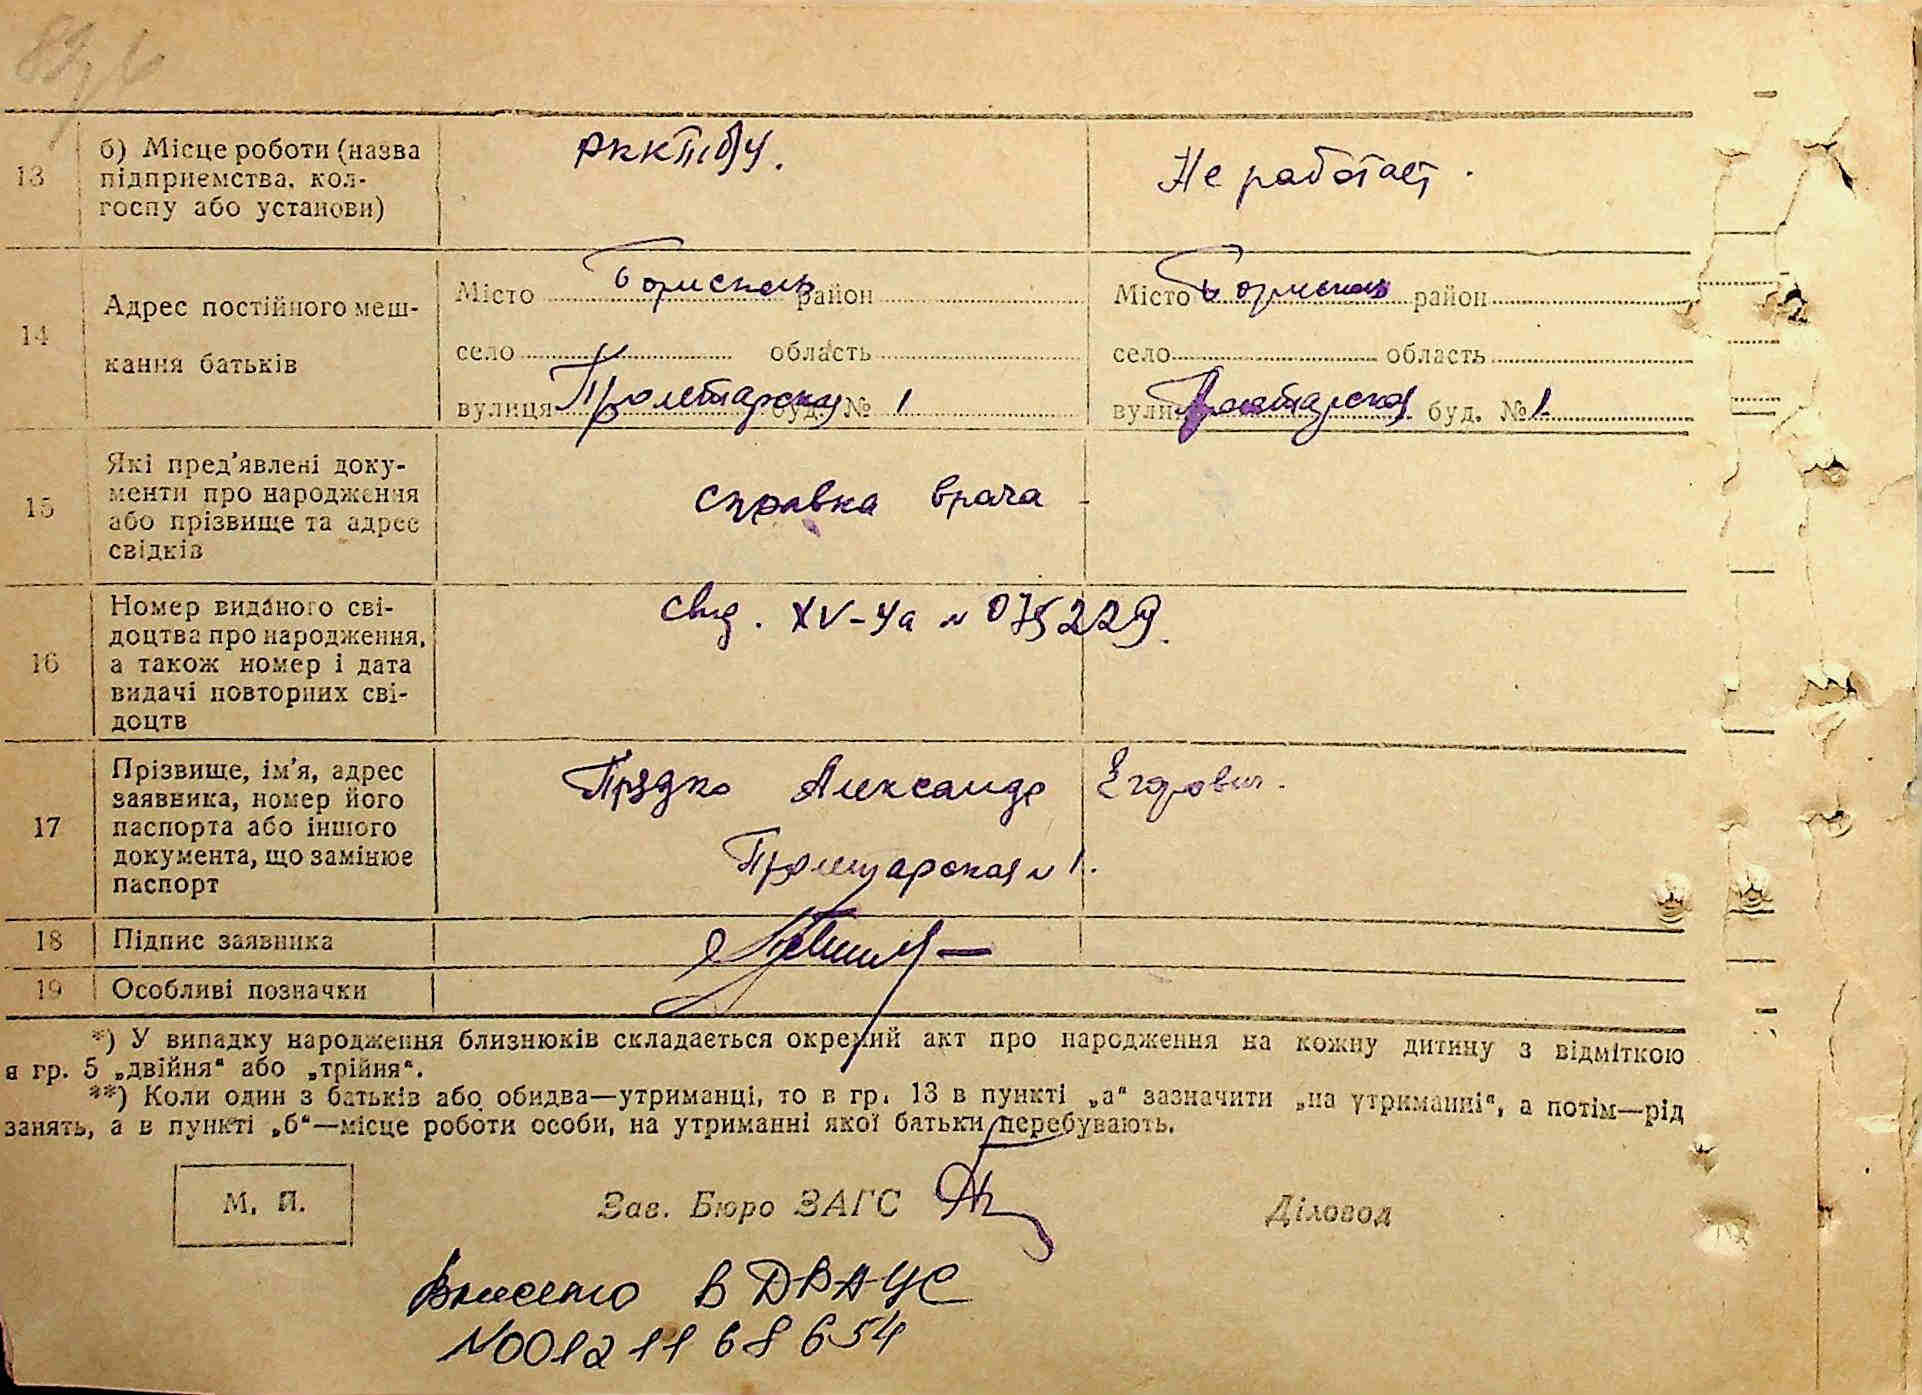 13
б) Місце роботи (назва
підприємства, кол-
госпу або установи)
Не работает.
14
Адрес постійного меш-
кання батьків
Місто Борисполь район
село область
вулиця Пролетарская буд. № 1
Місто Борисполь район
село область
вулиця Пролетарская буд. № 1
15
Які пред'явлені доку-
менти про народження
або прізвище та адрес
свідків
справка врача
16
Номер виданого сві-
доцтва про народження,
а також номер і дата
видачі повторних сві-
доцтв
свид. XV-Ча № 075229.
17
Прізвище, ім'я, адрес
заявника, номер його
паспорта або іншого
документа, що замінює
паспорт
Прядко Александр Егорович.
Пролетарская № 1.
18
Підпис заявника
19
Особливі позначки
*) У випадку народження близнюків складається окремий акт про народження на кожну дитину з відміткою
в гр. 5 „двійня“ або „трійня“.
**) Коли один з батьків або обидва—утриманці, то в гр. 13 в пункті „а“ зазначити „на утриманні“, а потім—рід
занять, а в пункті „б“—місце роботи особи, на утриманні якої батьки перебувають.
М. П.
Зав. Бюро ЗАГС
Діловод
Внесено в ДРАЦС
№00121168654